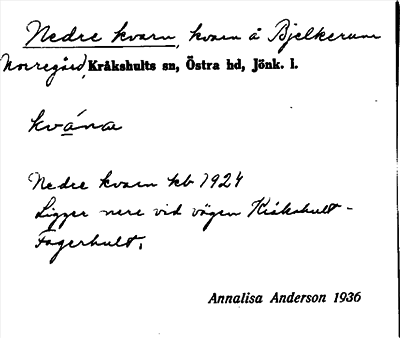 Nedre kvarn, kvarn å Bjelkerum
Norregård, Kråkshults sn, Östra hd, Jönk. l.
kvána
Nedre kvarn kb 1924
Ligger nere vid vägen Kråkshult -
Fagerhult.
Annalisa Anderson 1936